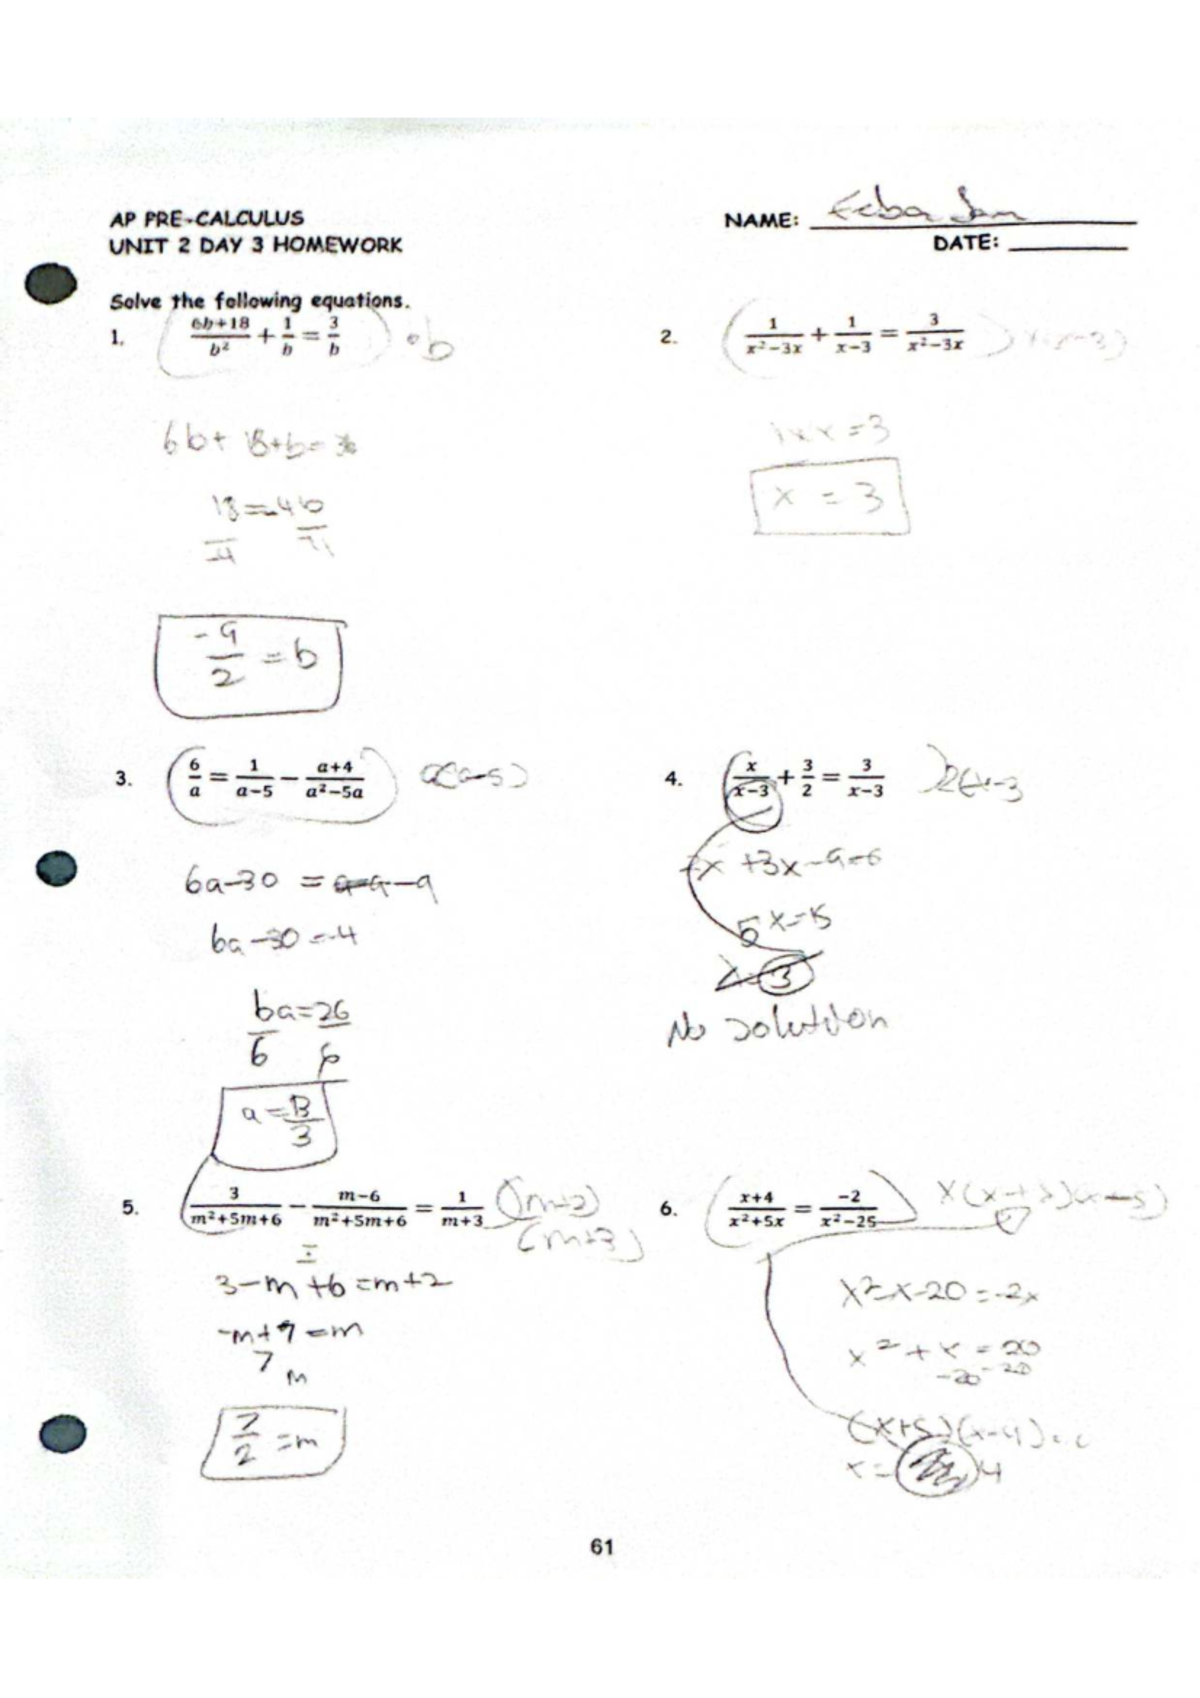 AP PRE-CALCULUS
UNIT 2 DAY 3 HOMEWORK
NAME:
DATE:
Solve the following equations.
1. (6b+18/b² + 1/b = 3/b) • b
6b + 18 + b = 3b
18 = -4b
-9/2 = b
2. (1/x²−3x + 1/x−3 = 3/x²−3x) x(x-3)
1+x = 3
x = 3
3. (6/a = 1/a−5 − a+4/a²−5a) a(a-5)
6a-30 = a-a-4
6a-30 = -4
6a/6 = 26/6
a = 13/3
4. (x/x−3 + 3/2 = 3/x−3) 2(x-3
2x + 3x - 9 = 6
5x = 15
x = 3
No solution
5. (3/m²+5m+6 − m−6/m²+5m+6 = 1/m+3) (m+2)
(m+3)
3-m+6 = m+2
-m+7 = m
7 m
7/2 = m
6. (x+4/x²+5x = −2/x²−25) x(x+5)(x-5)
x²-x-20 = -2x
x² + x = 20
-20 -20
(x+5)(x-4) =
x = 4
61